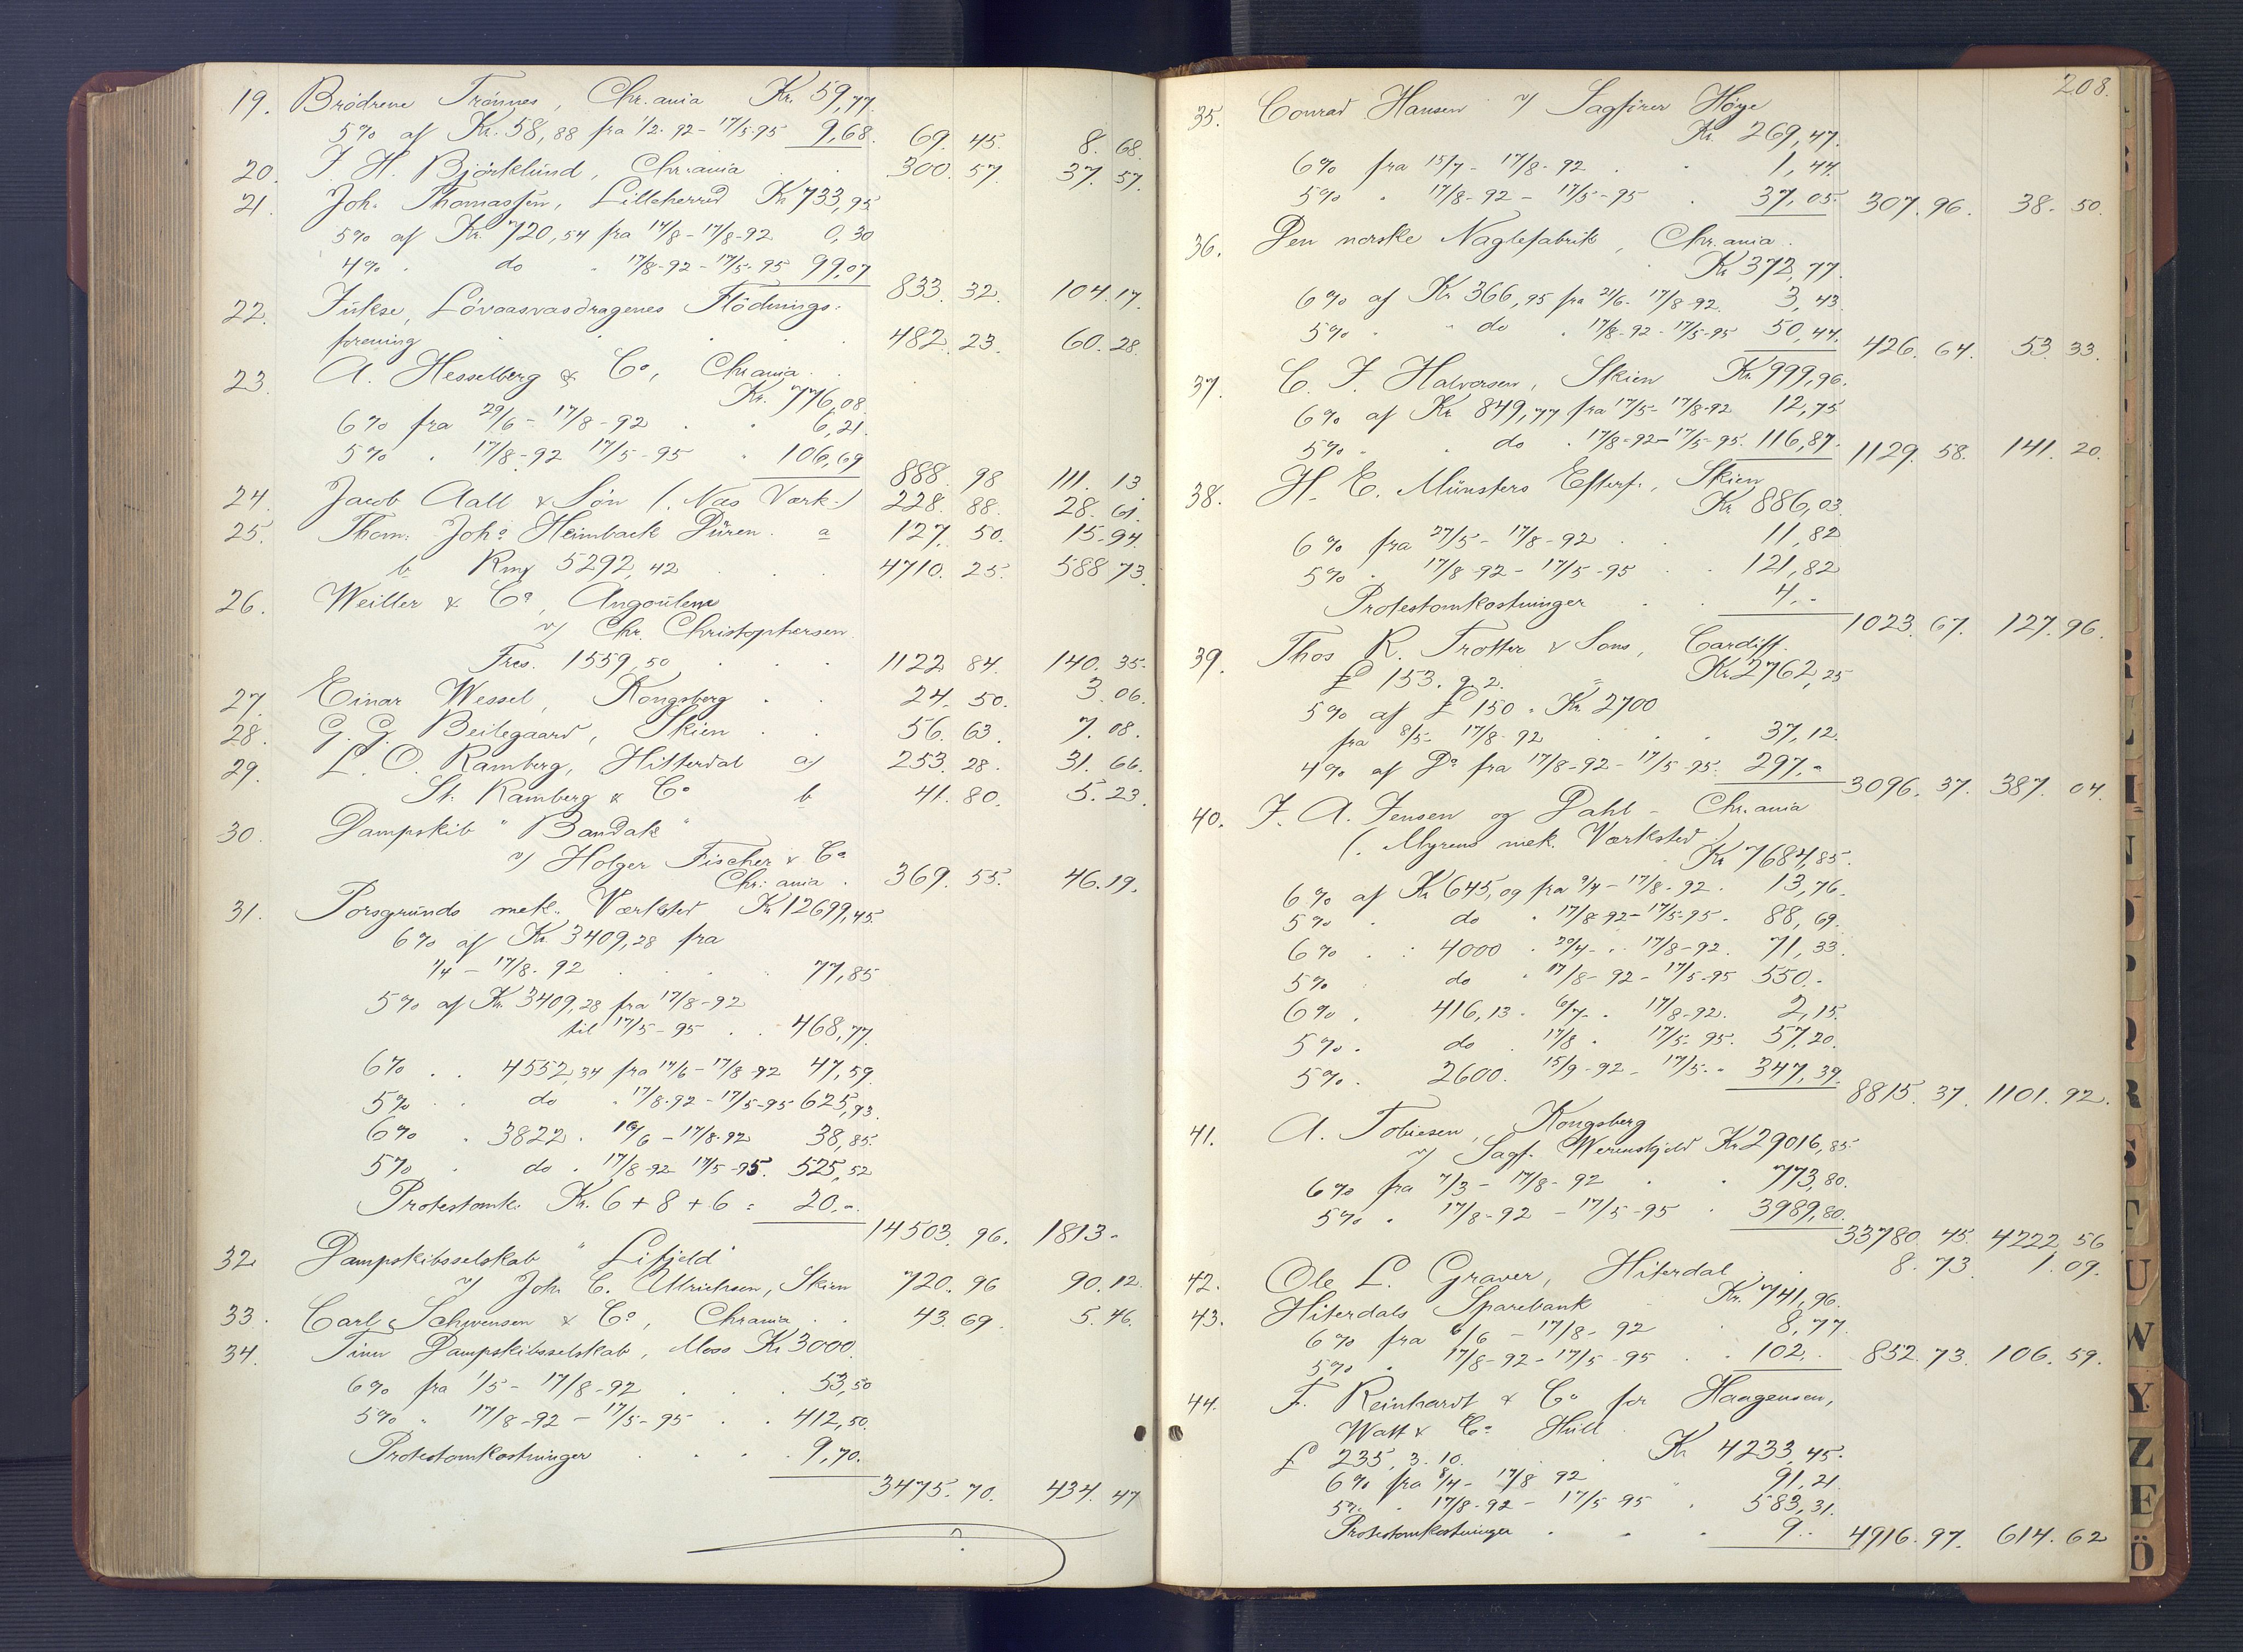 19. Brödrene Trønnes, Chr.ania Kr. 59,77.
5% af Kr. 58,88 fra 1/2-92-17/5-95 9,68. 69. 45. 8. 68.
20. J. H. Björklund, Chr.ania 300. 57. 37. 57.
21. Joh. Thomassen, Lilleherred Kr 733,95
5% af Kr. 720,54 fra 14/8-17/8-92 0,30
4% . do . 17/8-92-17/5-95 99,07
833. 32. 104. 17.
22. Lövaasvasdragenes Flödnings-
forening 482. 23. 60. 28.
23. A. Hesselberg & Co, Chr.ania.
Kr. 776,08.
6% fra 29/6 - 17/8-92 . . 6,21.
5% . 17/8-92 17/5-95 . 106,69
888. 98 111. 13
24. Jacob Aall & Søn (. Næs Værk.) 228. 88. 28. 61.
25. Thom. Joh. Heimback Düren. a 127. 50. 15. 94.
b Rmk 5292,42 . . . 4710. 25. 588. 73.
26. Weiller & Co, Angoulème
v/ Chr. Christophersen.
Frcs. 1559,50 . . . 1122. 84. 140. 35.
27. Einar Wessel, Kongsberg . . 24. 50. 3. 06.
28. G. G. Beilegaard, Skien . . 56. 63. 7. 08.
29. L. O. Ramberg, Hitterdal a/ 253. 28. 31. 66.
St. Ramberg & Co b 41. 80. 5. 23.
30. Dampskib "Bandak"
v/ Holger Fischer & Co
Chr: ania . 369. 55. 46. 19.
31. Porsgrunds mek. Værksted Kr 12699,45
6% af Kr. 3409,28 fra
1/4 - 17/8-92 . . . 77,85
5% af Kr. 3409,28 fra 17/8-92
til 17/5-95 . . 468,77.
6% . . 4552,34 fra 14/6-17/8-92 47,59.
5% . . do . 17/8-92-17/5-95 625,93.
6% . 3822. . 16/6-17/8-92 38,85.
5% . do . 17/8-92 17/5-95. 525,52
Protestomk. Kr. 6+8+6 = 20,-.
14503. 96. 1813-
32. Dampskibsselskab "Lifjeld"
v/ Joh. C. Ullrichsen, Skien 720. 96 90. 12.
33. Carl Schwensen & Co, Chrania . . 43. 69. 5. 46.
34. Dampskibsselskab, Moss Kr 3000.
6% fra 1/5 - 17/8-92 . . . 53,50
5% . 17/8-92 - 17/5-95 . . 412,50.
Protestomkostninger . . . 9,70.
3475. 70. 434. 47
208.
35. Conrad Hansen v/ Sagfører Høye
Kr. 269,47.
6% fra 15/7 - 17/8-92 . . 1,44.
5% . 17/8-92 - 17/5-95 . 37,05. 307. 96. 38. 50.
36. Den norske Naglefabrik, Chr.ania.
Kr 372,77.
6% af Kr 366,95 fra 21/6- 17/8-92. 3,43.
5% . . do . 17/8-92-17/5-95 50,44. 426. 64. 53. 33.
37. C. J. Halvorsen, Skien Kr 999,96.
6% af Kr 849,77 fra 17/5-17/8-92 12,75
5% . . do . 17/8-92-17/5-95. 116,87. 1129. 58. 141. 20.
38. H. E. Münsters Efterf., Skien
Kr 886,03.
6% fra 27/5 - 17/8-92 . . 11,82
5% . 17/8-92 - 17/5-95 . . 121,82
Protestomkostninger . . 4,-
1023. 67. 127. 96.
39. Thos R. Trotter & Sons, Cardiff.
£ 153. 9. 2. = Kr 2762,25
5% af £ 150 = Kr 2700
fra 8/5- 17/8-92 . . . 37,12.
4% af Do fra 17/8-92-17/5-95. 297,-
3096. 37. 387. 04.
40. J. A. Jensen og Dahl - Chr.ania
(. Myrens mek. Værksted.)
Kr 7684,85.
6% af Kr 645,09 fra 9/4-17/8-92. 13,76.
5% . do . 17/8-92-17/5-95. 88,69.
6% . : 4000 . 29/4- . 17/8-92. 71,33.
5% do . 17/8-92-17/5-95 550.-
6% . 416,13 . 6/7- . 17/8-92. 2,15.
5% . do . 17/8 . 17/5-95. 57,20.
5% . 2600. 15/9-92 - 17/5- . 347,39.
8815. 37. 1101. 92.
41. A. Tobiesen, Kongsberg
v/ Sagf. Werenskjold Kr 29016,85.
6% fra 7/3 - 17/8-92 . . 773,80.
5% . 17/8-92 - 17/5-95 . 3989,80.
33780. 45. 4222. 56
42. Ole L. Graver, Hiterdal . . 8. 73. 1. 09.
43. Hiterdals Sparebank Kr. 741,96.
6% fra 6/6 - 17/8-92 . 8,77.
5% . 17/8-92-17/5-95 . . 102,- 852. 73. 106. 59.
44. F. Reinhardt & Co for Haagensen,
Watt & Co Hull.
£ 235. 3. 10. . . Kr 4233,45.
6% fra 8/4- 17/8 92 91,21.
5% . 17/8-92 - 17/5 95 . 583,31.
Protestomkostninger . . . 9.- 4916. 97. 614. 62
L
N
O
P
Q
R
S
T
U
W
Y
Z
Ö